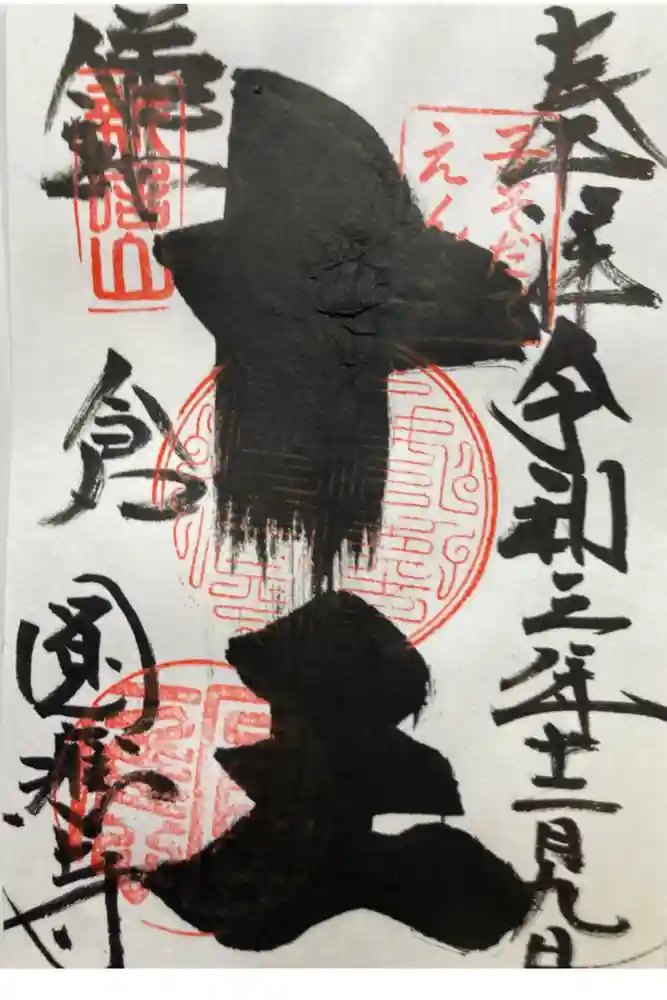 奉拝 令和三年十二月九日
子そだて
えんま
十王
鎌倉 圓應寺
新居山